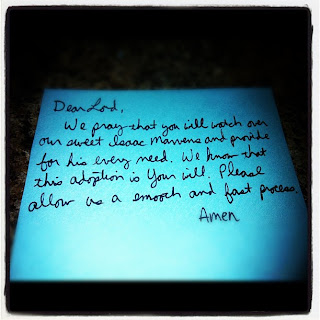 Dear Lord,
We pray that you will watch over
our sweet Isaac and provide
for his every need. We know that
this adoption is Your will. Please
allow us a smooth and fast process.
Amen